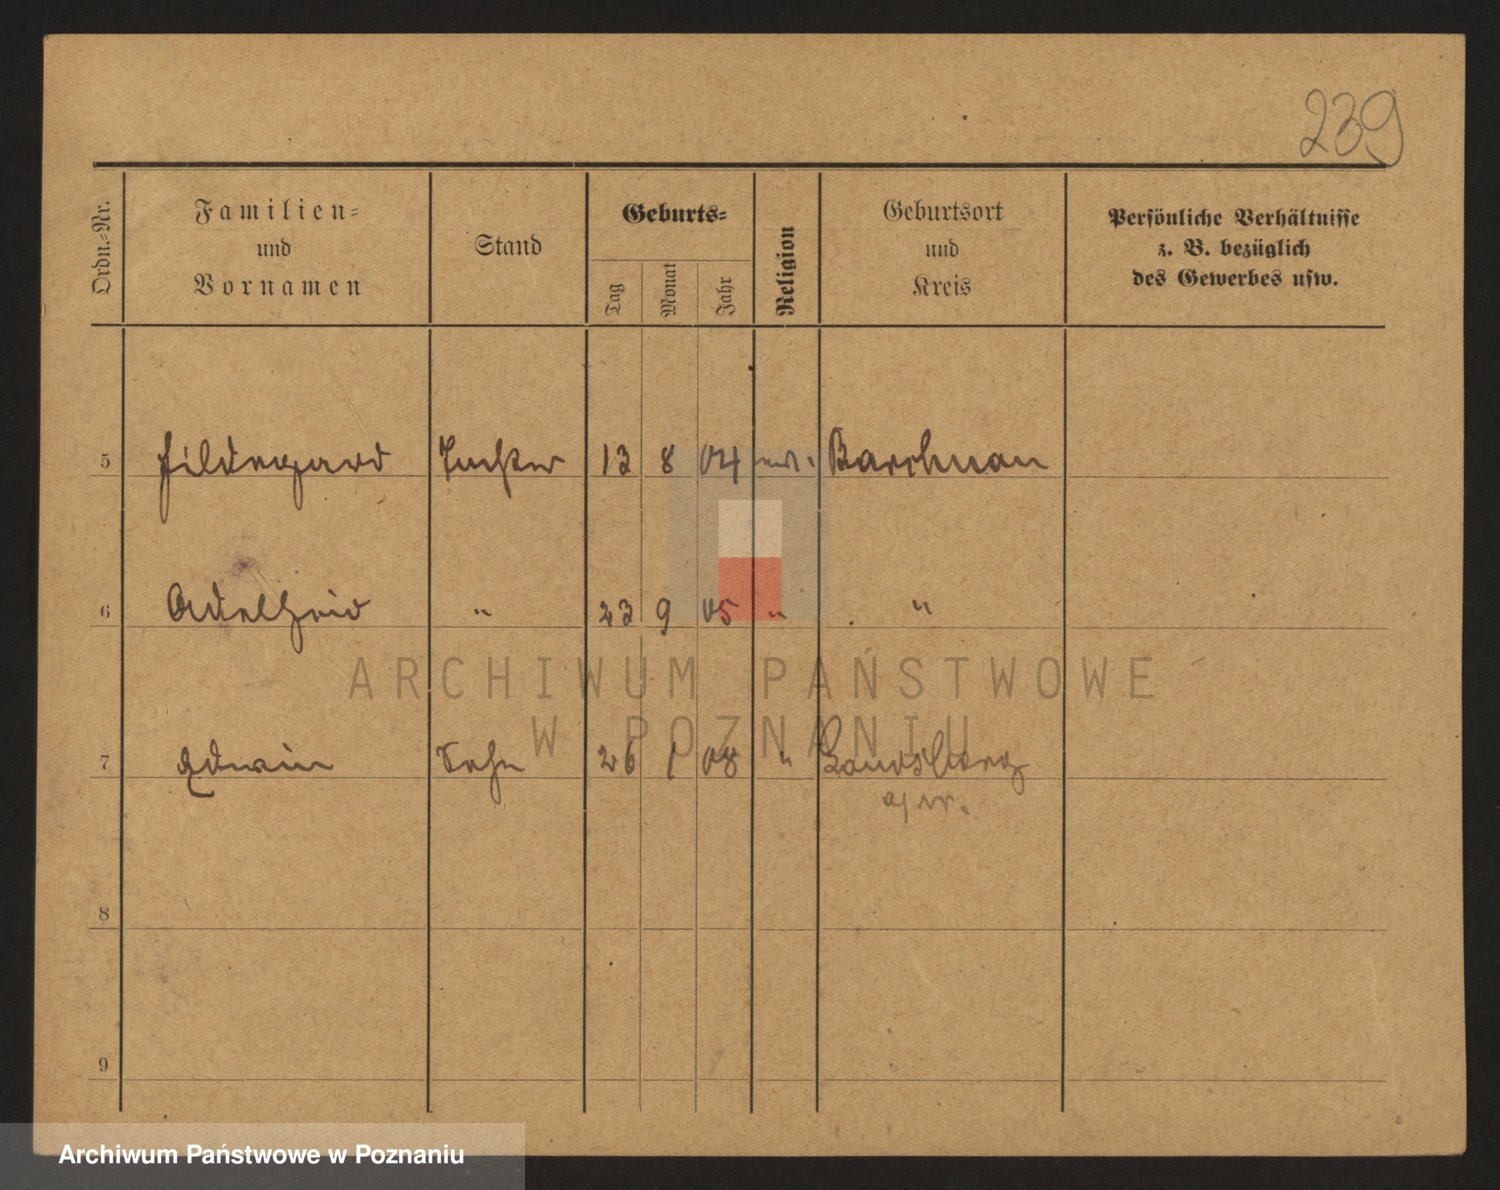 239
Ordn.-Nr.
Familien-
und
Vornamen
Stand
Geburts-
Tag
Monat
Jahr
Religion
Geburtsort
und
Kreis
Persönliche Verhältnisse
z. B. bezüglich
des Gewerbes usw.
5 Hildegard Tochter 13 8 04
6 Adelheid " 23 9 05 " "
7 Edwin Sohn 26 1 08 " Landsberg
a/W.
8
9
ARCHIWUM PAŃSTWOWE
W POZNANIU
Archiwum Państwowe w Poznaniu